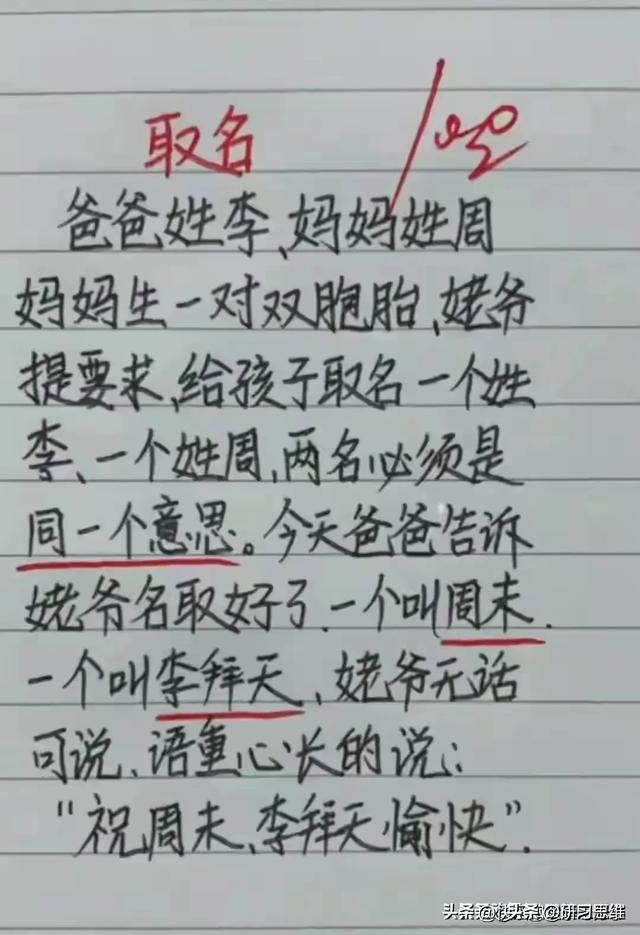 取名
爸爸姓李、妈妈姓周
妈妈生一对双胞胎、姥爷
提要求、给孩子取名一个姓
李、一个姓周,两名必须是
同一个意思。今天爸爸告诉
姥爷名取好了、一个叫周末.
一个叫李拜天、姥爷无话
可说、语重心长的说:
“祝周末、李拜天愉快”.
头条 @研习思维